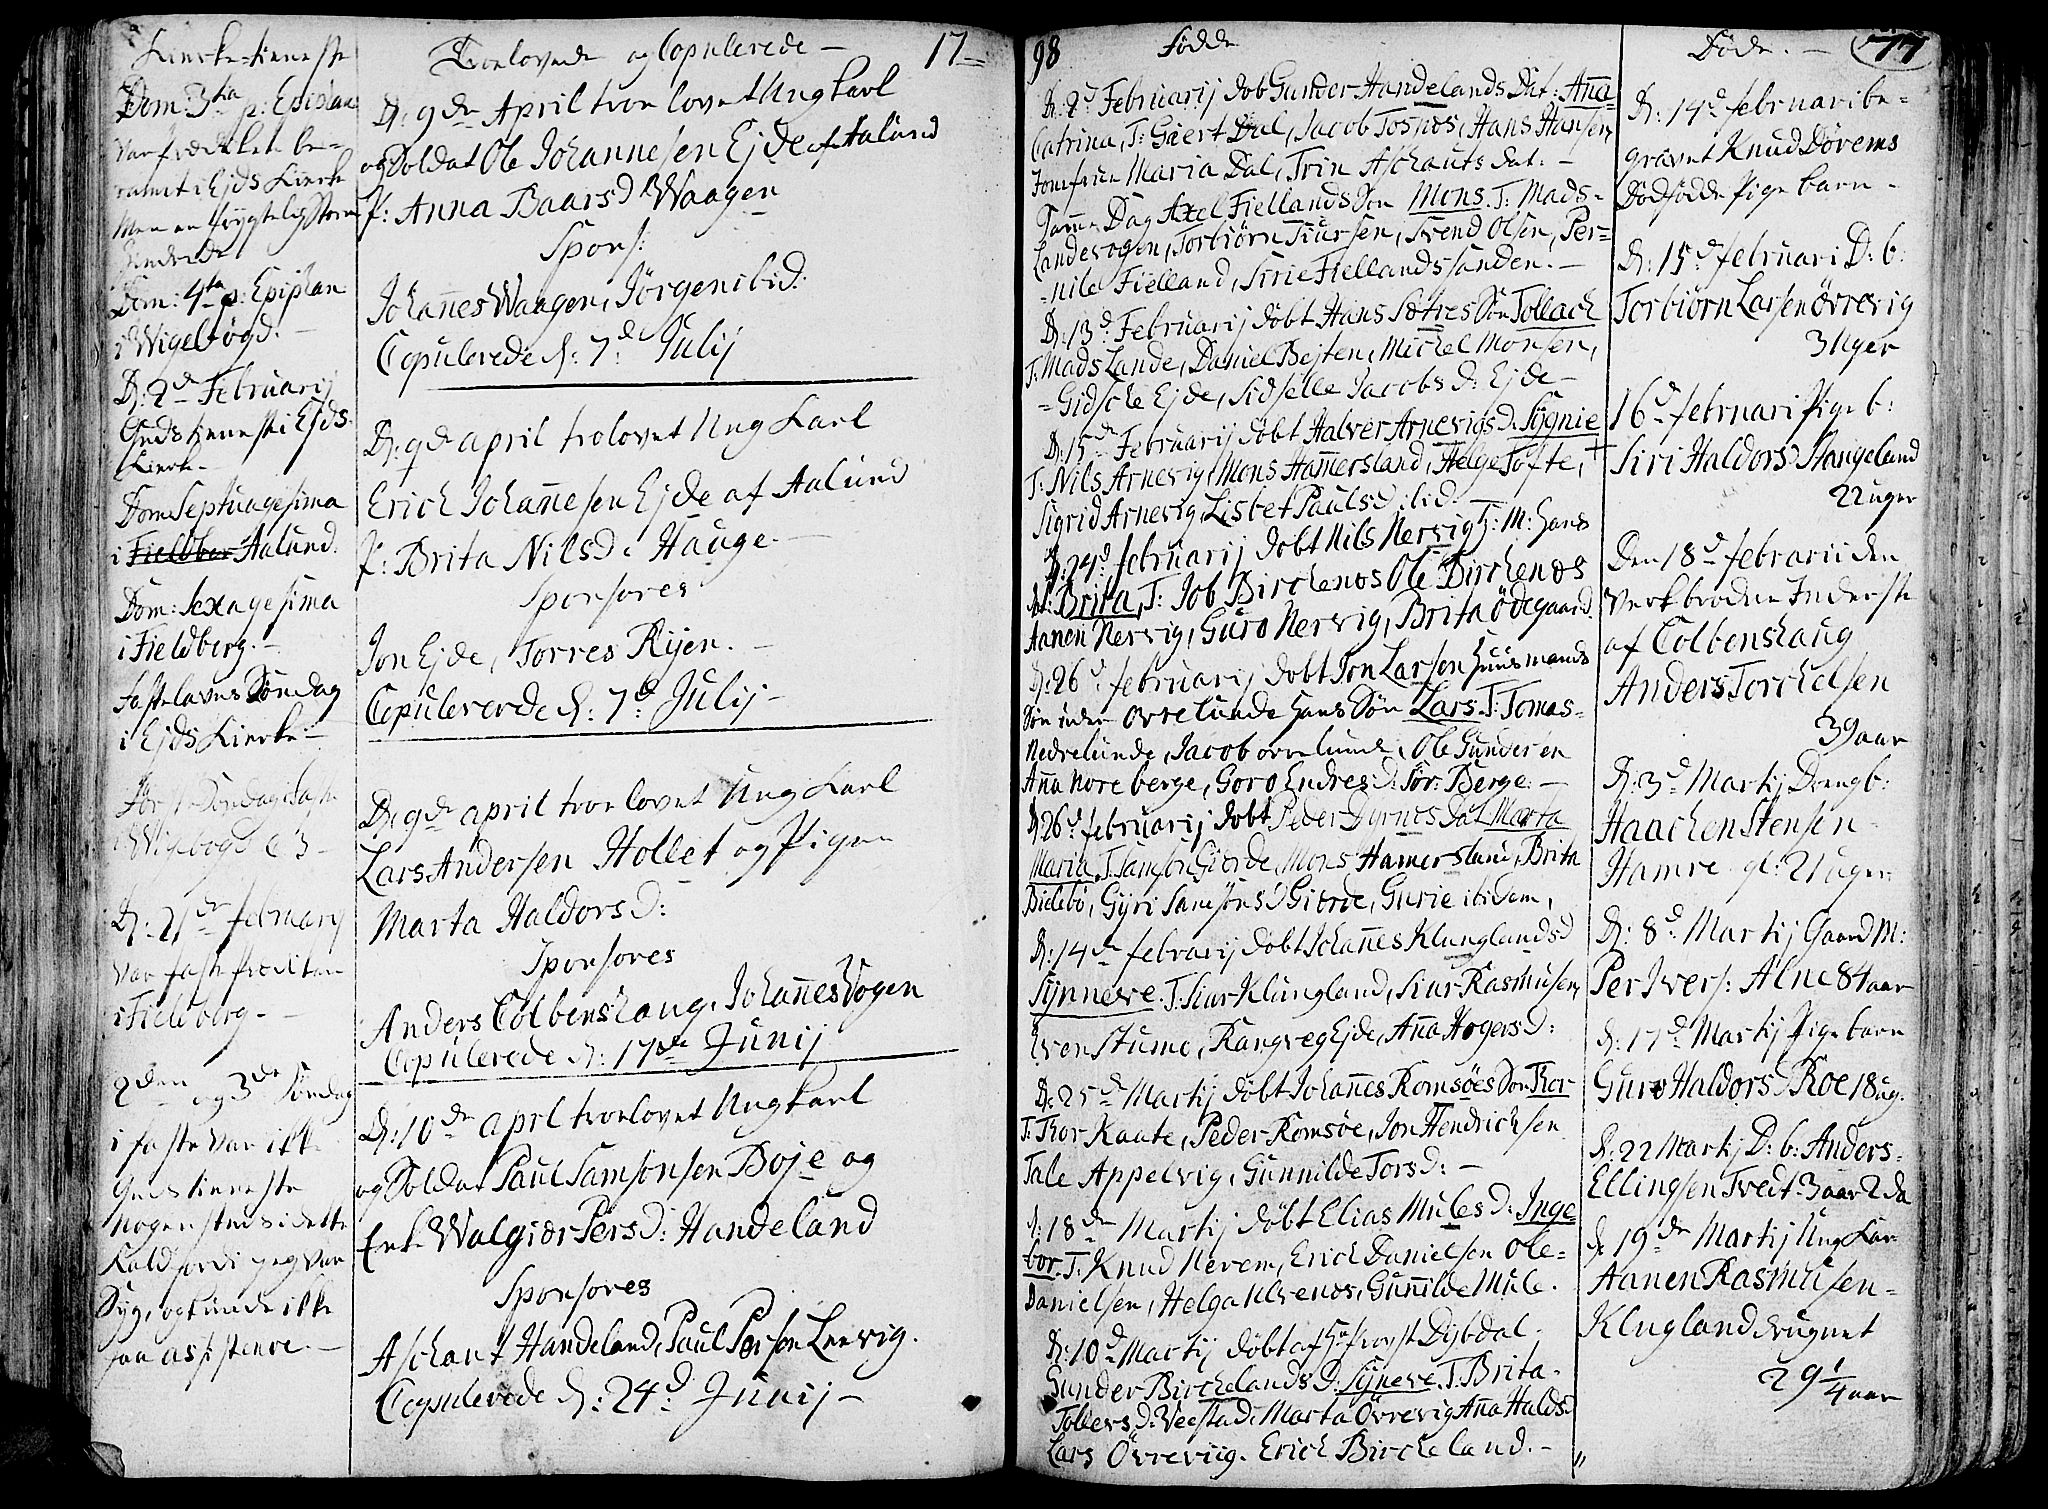 Kierke-tieneste
Dom: 3tia p: Epiphan
var frædiket be-
ramt i Ejds Kierke
Men en frygtelig Storm
hindrede
Dom: 4ta p: Epiphan
i Wigebögd. -
D: 2d Februarij
Guds tieneste i Ejds
Kierke -
Dom Septuagesima
i Fieldber Aalund.
Dom: Sexagesima
i Fieldberg. -
Fastelavns Söndag
i Ejds Kierke -
Förste Söndag i faste
i Wigebögd
D: 21de februarij
var faste prædiken
i Fieldberg. -
2den og 3de Söndag
i faste var ikke
Guds tieneste
nogensteds i dette
Kald fordi jeg var
Syg, og kunde ikke
faa assistence. -
Troelovede og Copulerede - 17
D: 9de April troelovet Ung Karl
og Soldat Ole Johannesen Ejde af Aalund
P: Anna Baarsd Waagen
Spons:
Johannes Waagen, Jörgen ibid:
Copulerede d: 7de Julij
D: 9de april trolovet Ung Karl
Erich Johannesen Ejde af Aalund
P: Brita Nilsd: Hauge. -
Sponsores
Jon Ejde, Torres Rijen. -
Copulerede d: 7d Julij -
D: 9de april troelovet Ung Karl
Lars Andersen Hollet og Pigen
Marta Haldorsd:
Sponsores
Anders Colbenshaug, Johannes Vogen
Copulerede d: 17de Junij
D: 10de aprl troelovet Ung karl
og Soldat Paul Samsonsen Boje og
Enke Walgiær Persd: Handeland
Sponsores
Aschant Handeland, Paul Persen Leervig.
Copulerede d: 24d Junij -
98 Födde
D: 2d Februarij döb Gunder Handelands Dat: Ana
Catrina, T: Giert Dal, Jacob Tosnæs, Hans Hansen,
Jomfrue Maria Dal, Trin Aschauts dat: -
Samme Dag Axel Fiellands Sön Mons. T: Mads-
Landevogen, Torbiörn Siursen, Svend Olsen, Per-
-nile Fielland, Sirie Fiellandssanden. -
D: 13d Februarij döbt Hans Sætres Sön Tollach
T: Mads Lande, Daniel Bejten, Michel Monsen,
-Gidsche Ejde, Sidselle Jacobsd: Ejde -
D: 15de Februarij döbt Halver Arnevigs d: Sÿgnie
T: Nils Arnevig, Mons Hammersland, Helge Tofte,
Sigrid Arnevig, Lisbet Paulsd: ibid. -
D: 24d februarij döbt Nils Nervig H: M: hans
dat: Brita, T: Job Birckenæs Ole Birckenæs
Aanen Nervig, Guro Nervig, Brita Ödegaard.
D: 26d februarij döbt Jon Larsen huusmands
Sön under övrelunde hans Sön Lars. T: Tomas-
Nedrelunde, Jacob övrelunde, Ole Gundersen
Ana Noreberge, Goro Endresd: Sör: Berge. -
D: 26d februarij döbt Peder Dyrnes Dat Marta
Maria. T: Samson Gierde, Mons Hamersland, Brita
Bielebö, Gyri Samsonsd Gierde, Gurie ibidem,
D: 14de februarij döbt Johannes Klunglands d
Synneve. T: Siur Klungland, Siur Rasmusen,
Even Stumo, Rangveg Ejde, Ana Hogersd:
D: 25d Martij döbt Johannes Romsöes Sön Thor
T: Thor Kaate, Peder Romsöe, Jon Hendrichsen
Tale Appelvig, Gunnilde Torsd: -
d: 18de Martij döbt Elias Mules d: Inge
bor. T: Knud Nerem, Erich Danielsen Ole-
Danielsen, Helga Ulvenos, Gunilde Mule.
D: 10d Martij döbt af Hr: Provst Dybdal
Gunder Birchelands D: Syneve. T: Brita-
Tollersd: Veestad, Marta Övrevig Ana Haldsd
Lars Övreviig. Erich Bircheland. -
Döde. - 77
D: 14d februari be-
gravet Knud Dörems
Dödfödde Pige barn -
D: 15d februari D: b:
Torbiörn Larsen Övrevig
3 Uger
16d februari Pige b:
Siri Haldorsd Stangeland
22 uger
Den 18d februarii den
Verkbrodne Inderste
af Colbenshaug
Anders Torchelsen
39 aar
D: 3d Martij Dreng b:
Haachen Stensen -
Hamre gl: 21 uger
D: 8d Martij Gaard M:
Per Ivers: Alne 84 aar
D: 17d Martij Pige barn
Guro Haldorsd Roe 18 ug.
D: 22 Martij D: b: Anders-
Ellingsen Tveit 3 aar 2 da
d: 19de Martij Ung Kar
Aanen Rasmusen -
Klugland drugnet
29 1/4 aar